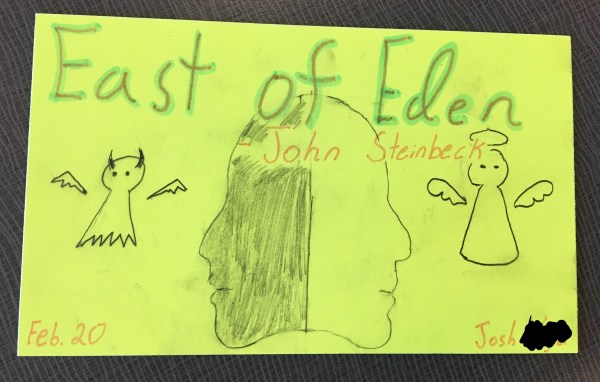 East of Eden
- John Steinbeck
Feb. 20
Josh